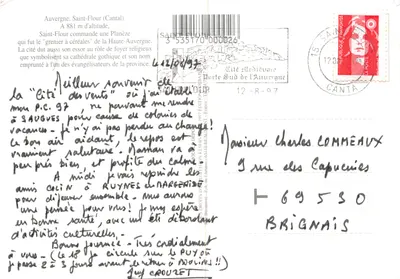 Auvergne. Saint-Flour (Cantal)
A 881 m d'altitude,
Saint-Flour commande une Planèze
qui fut le "grenier à céréales" de la Haute-Auvergne.
La cité dut aussi son nom au rôle de foyer religieux
que symbolisent sa cathédrale gothique et son nom
emprunté à l'un des évangélisateurs de la province.
3 535170 000026
Cité Médiévale
Porte Sud de l'Auvergne
12-8-97
CANTAL
le 12/08/97
Meilleur souvenir de
la "Cité des vents" où j'ai établi
mon P.C. 97, ne pouvant me rendre
à SAUGUES pour cause de colonies de
vacances. Je n'y ai pas perdu au change!
Le bon air aidant, le repos est
vraiment salutaire. Maman va à
peu près bien, et profite du calme.
A midi je vais rejoindre les
amis COLIN à RUYNES en MARGERIDE
pour déjeuner ensemble. Nous aurons
une pensée pour vous! Je vous espère
en bonne santé, avec un été débordant
d'activités culturelles.
Bonne journée. Très cordialement
à vous. (Le 18 je circule sur le PUY où
je passe 2 à 3 jours avant retour à MOULINS!!)
Guy CROUZET
Monsieur Charles COMMEAUX
9 rue des Capucines
69530
BRIGNAIS